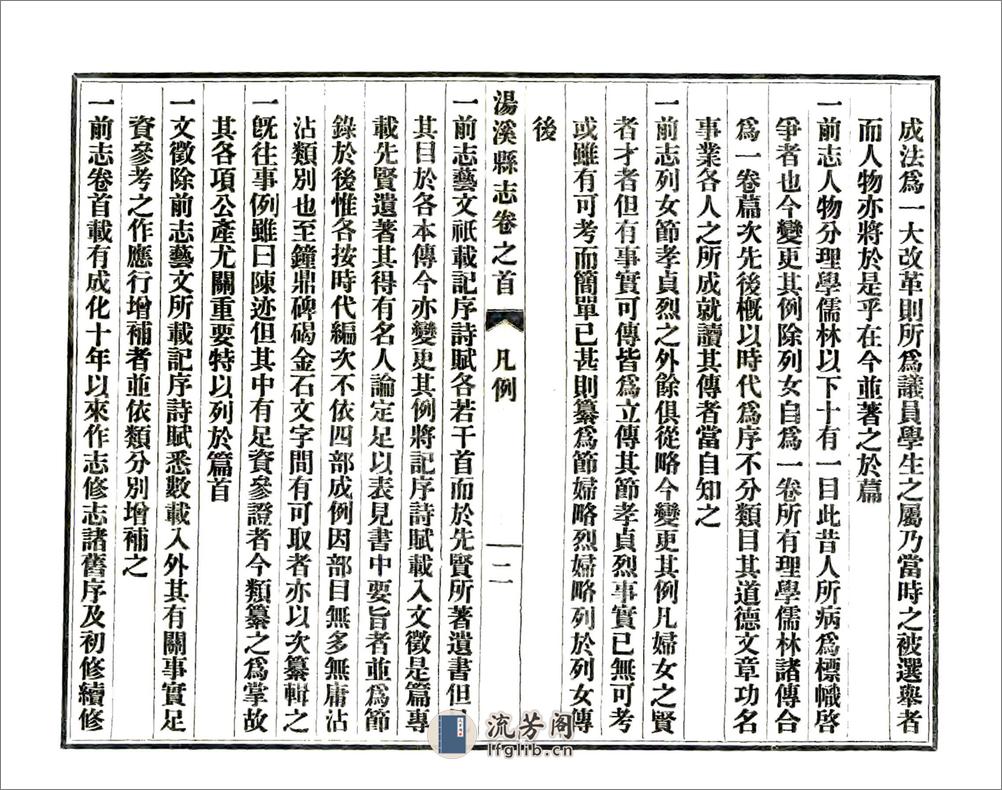 成法爲一大改革則所爲議員學生之屬乃當時之被選舉者
而人物亦將於是乎在今並著之於篇
一前志人物分理學儒林以下十有一目此昔人所病爲標幟啓
爭者也今變更其例除列女自爲一卷所有理學儒林諸傳合
爲一卷篇次先後槪以時代爲序不分類目其道德文章功名
事業各人之所成就讀其傳者當自知之
一前志列女節孝貞烈之外餘俱從略今變更其例凡婦女之賢
者才者但有事實可傳皆爲立傳其節孝貞烈事實已無可考
或雖有可考而簡單已甚則纂爲節婦略烈婦略列於列女傳
後
湯溪縣志卷之首 凡例 二
一前志藝文祇載記序詩賦各若干首而於先賢所著遺書但
其目於各本傳今亦變更其例將記序詩賦載入文徵是篇專
載先賢遺著其得有名人論定足以表見書中要旨者並爲節
錄於後惟各按時代編次不依四部成例因部目無多無庸沾
沾類別也至鐘鼎碑碣金石文字間有可取者亦以次纂輯之
一旣往事例雖曰陳迹但其中有足資參證者今類纂之爲掌故
其各項公產尤關重要特以列於篇首
一文徵除前志藝文所載記序詩賦悉數載入外其有關事實足
資參考之作應行增補者並依類分別增補之
一前志卷首載有成化十年以來作志修志諸舊序及初修續修
流芳阁
lfglib.cn